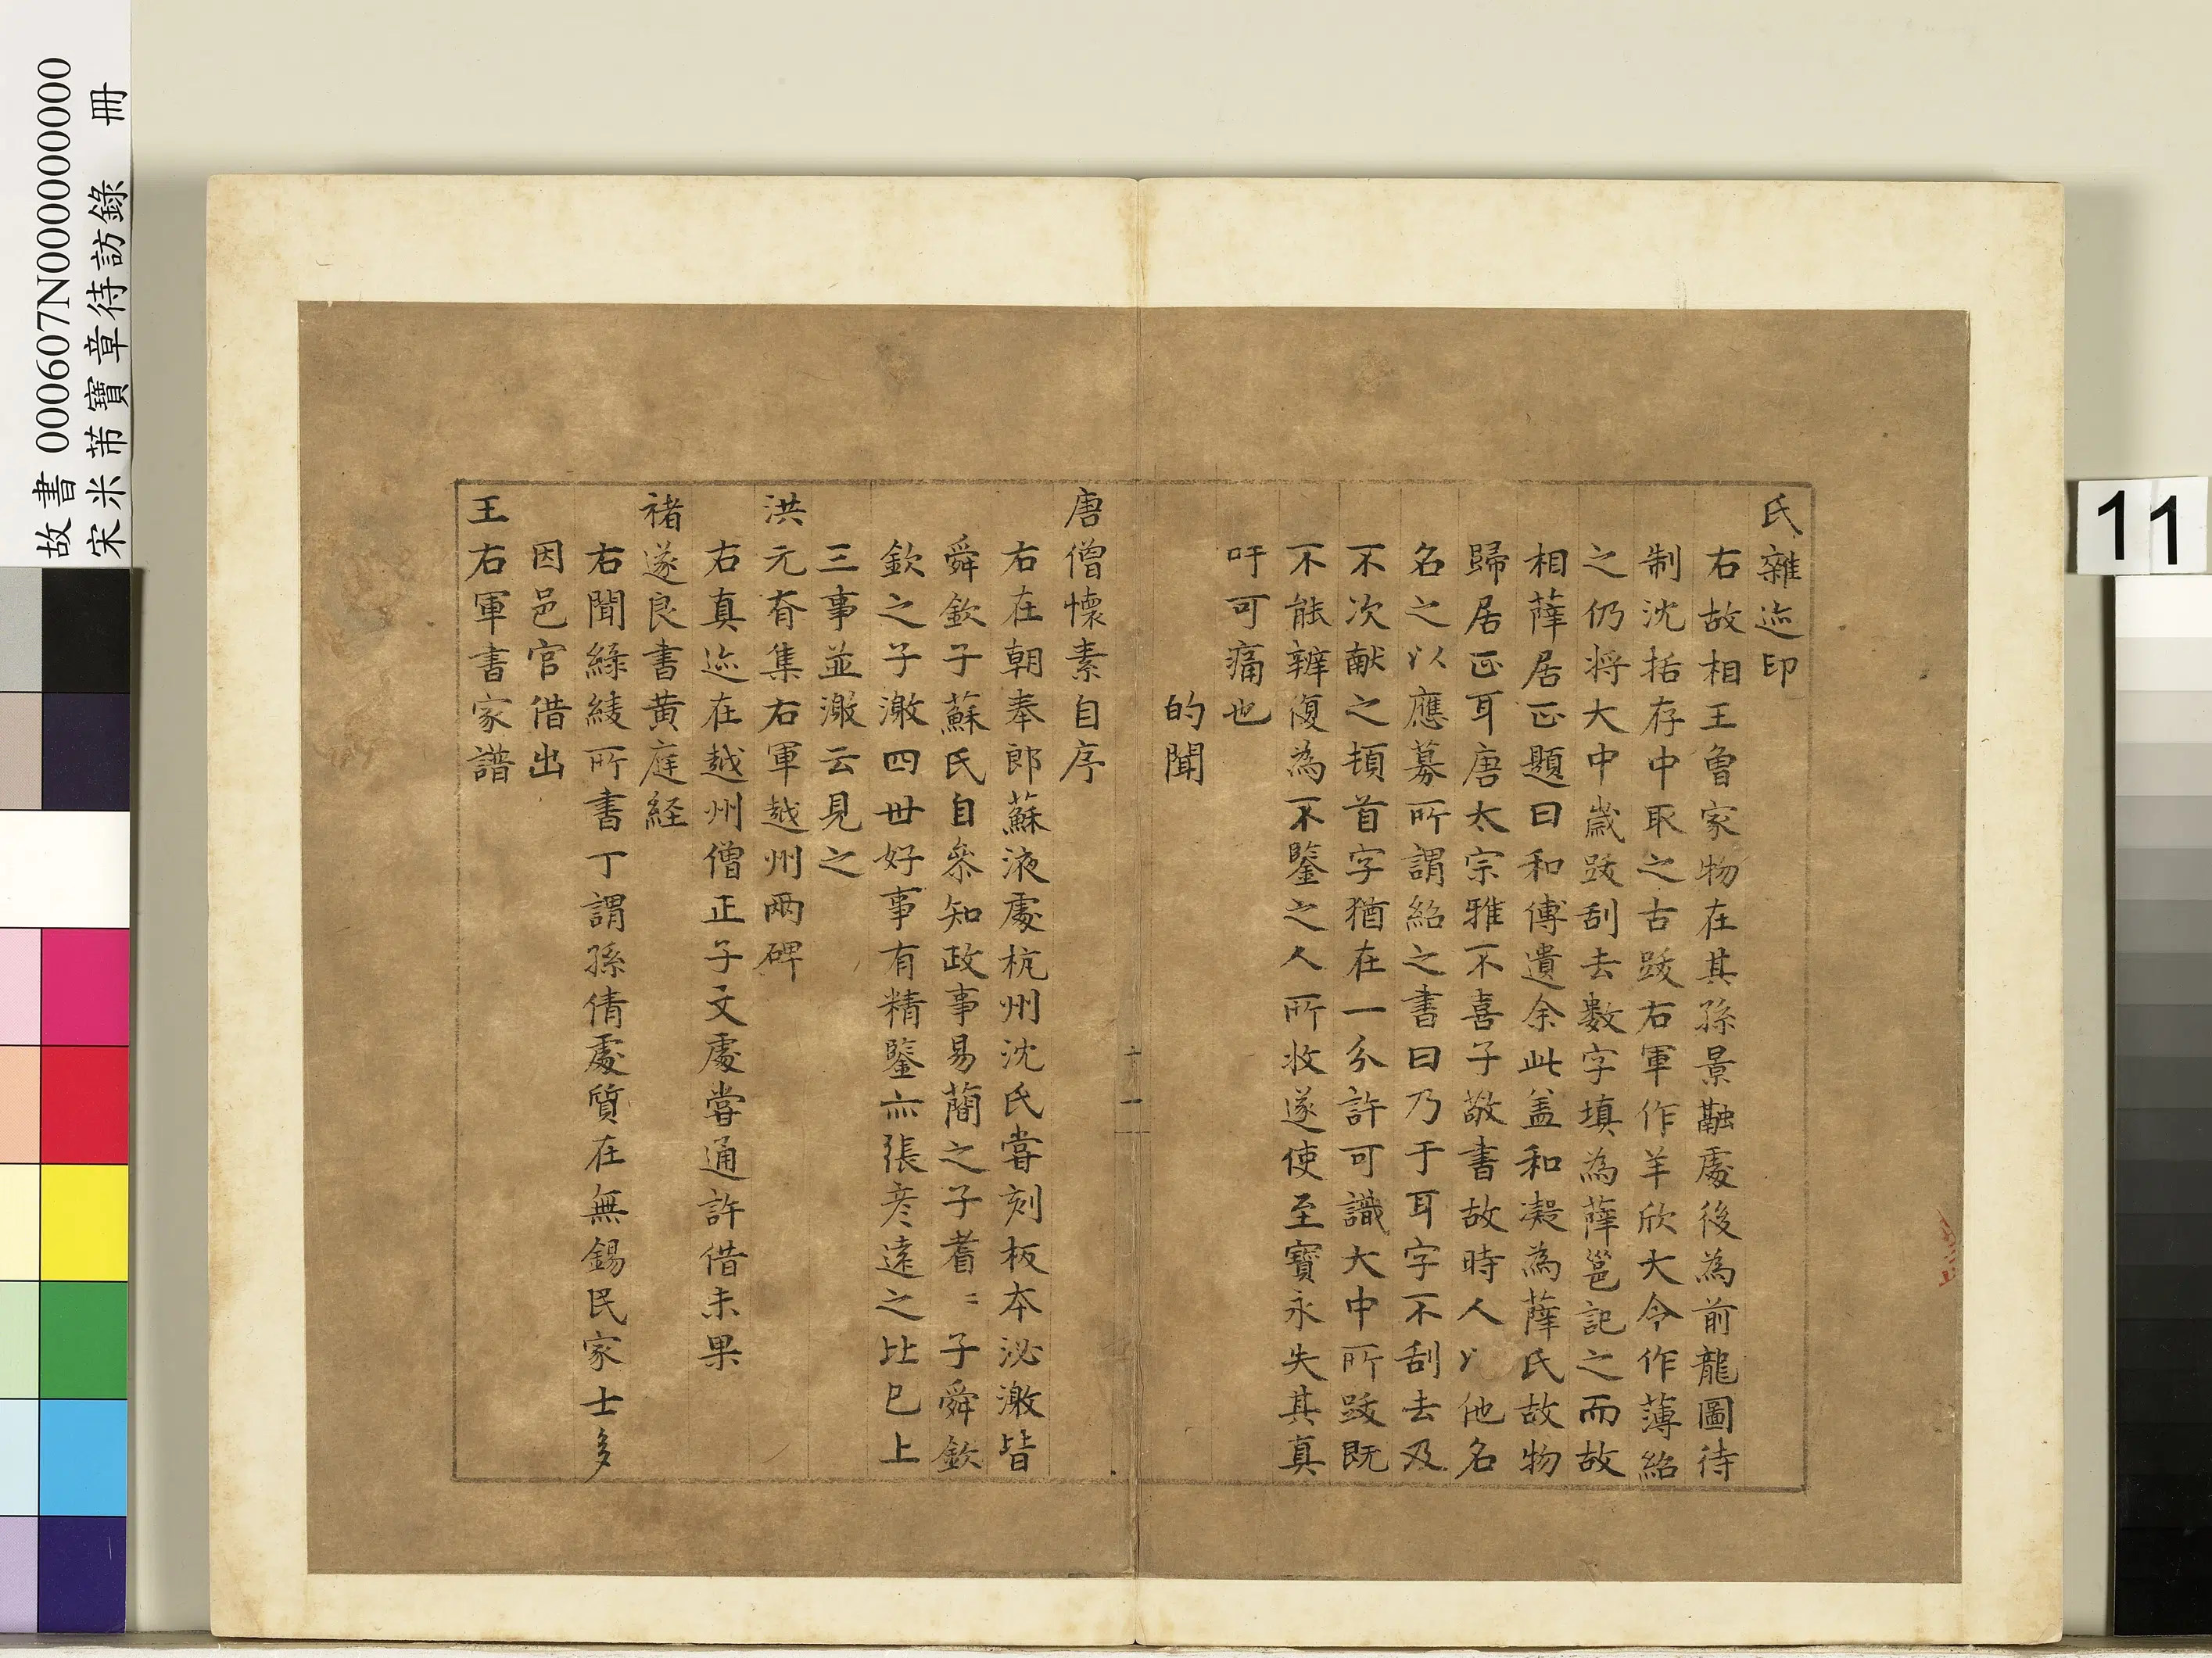 氏雜迹印
右故相王魯家物在其孫景融處後為前龍圖待
制沈括存中取之古跋右軍作羊欣大令作薄紹
之仍将大中歲跋刮去數字填為薛邕記之而故
相薛居正題曰和傅遺余此盖和凝為薛氏故物
歸居正耳唐太宗雅不喜子敬書故時人以他名
名之以應募所謂紹之書曰乃于耳字不刮去及
不次献之頓首字猶在一分許可識大中所跋既
不能辨復為不鑒之人所收遂使至寶永失其真
吁可痛也
的聞
十一
唐僧懷素自序
右在朝奉郎蘇液處杭州沈氏嘗刻板本泌激皆
舜欽子蘇氏自叅知政事易簡之子耆〻子舜欽
欽之子激四世好事有精鑒亦張彦遠之比已上
三事並激云見之
洪元眘集右軍越州兩碑
右真迹在越州僧正子文處嘗通許借未果
褚遂良書黄庭経
右聞綠綾所書丁謂孫倩處質在無錫民家士多
因邑官借出
王右軍書家譜
故書 000607N000000000
宋米芾寶章待訪錄 冊
11